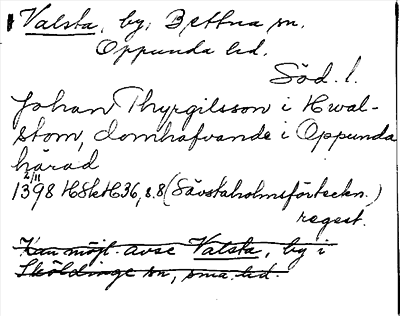 Valsta, by, Bettna sn.
Oppunda hd.
Söd. l.
Johan Thyrgilsson i Hwal-
stom, domhafvande i Oppunda
härad
2/11
1398 HSkH36, s.8 (Säfstaholmsförteckn.)
regest.
Kan möjl. avse Valsta, by i
Sköldinge sn, sma. hd.